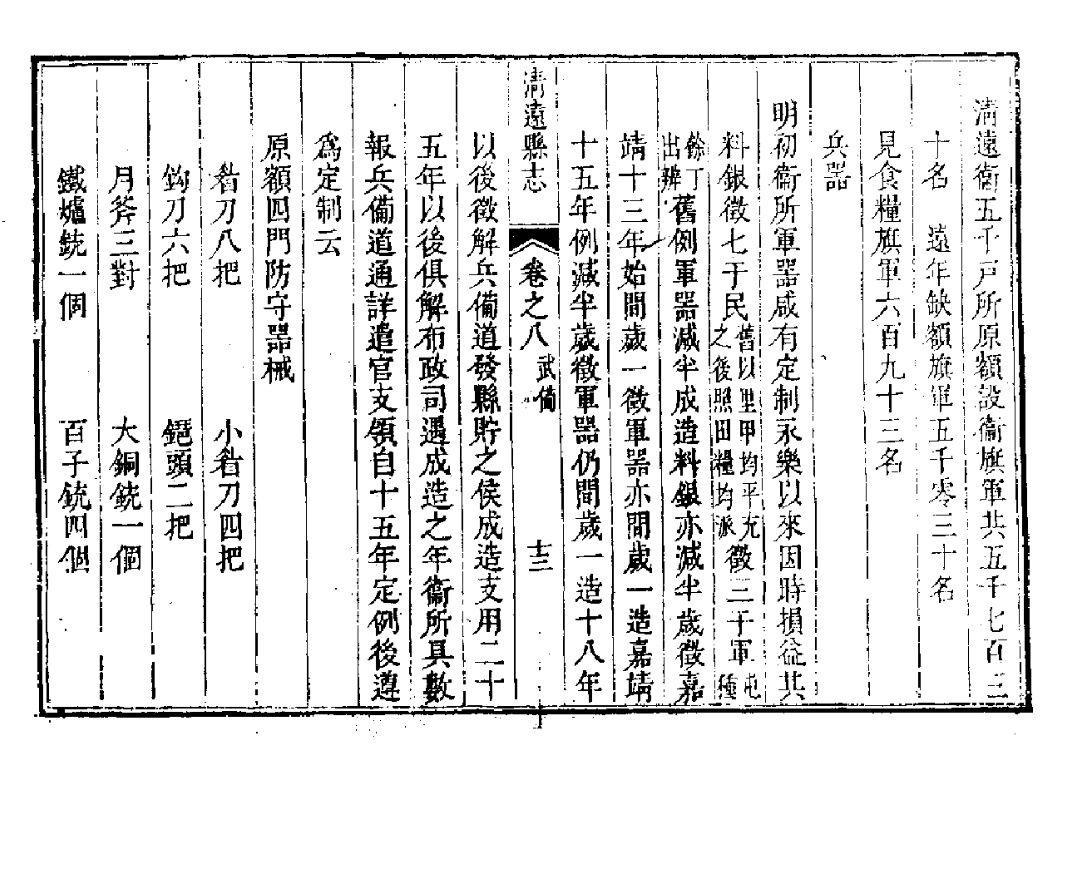 清遠衞五千戸所原額設衞旗軍共五千七百三
十名　遠年缺額旗軍五千零三十名
見食糧旗軍六百九十三名
兵器
明初衞所軍器咸有定制永樂以來因時損益共
料銀徵七于民舊以里甲均平充之後照田糧均派徵三于軍屯種
餘丁出辦舊例軍器減半成造料銀亦減半歲徵嘉
靖十三年始間歲一徵軍器亦間歲一造嘉靖
十五年例減半歲徵軍器仍間歲一造十八年
清遠縣志　卷之八　武備　十三
以後徵解兵備道發縣貯之侯成造支用二十
五年以後俱解布政司遇成造之年衞所具數
報兵備道通詳遣官支領自十五年定例後遵
爲定制云
原額四門防守器械
觜刀八把　小觜刀四把
鈎刀六把　鎞頭二把
月斧三對　大銅銃一個
鐵爐銃一個　百子銃四個